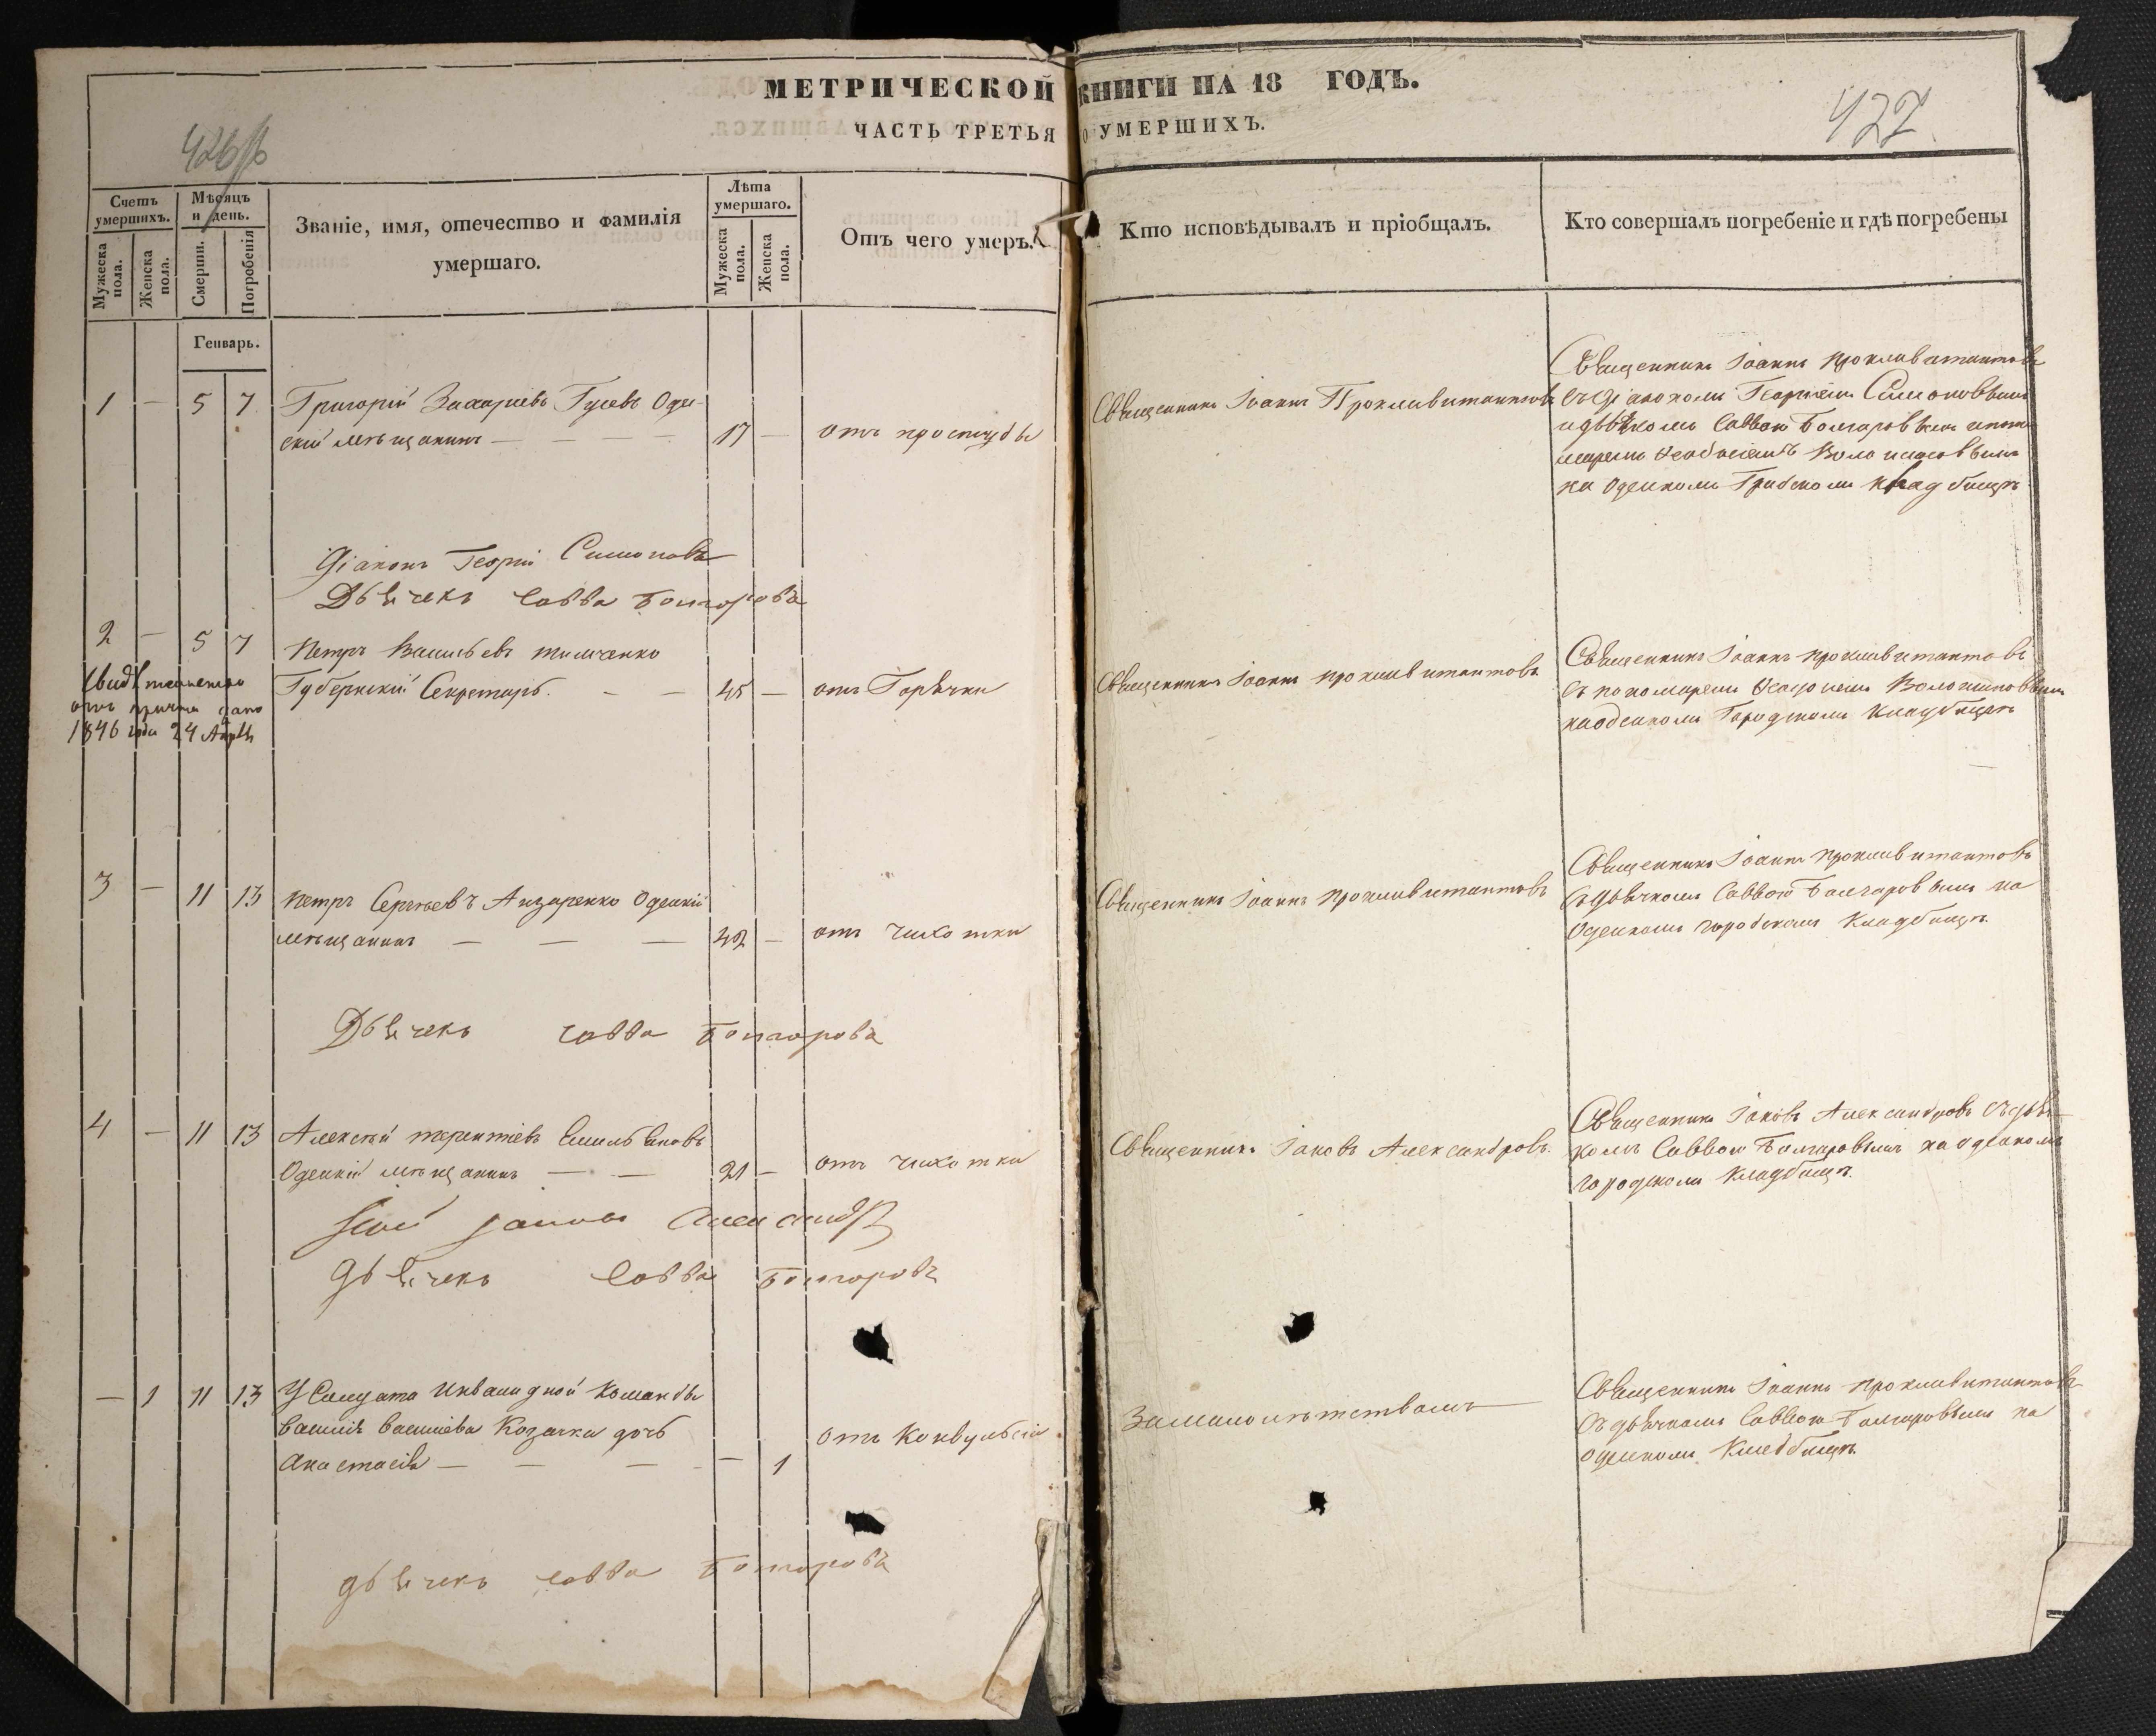 МЕТРИЧЕСКОЙ КНИГИ НА 18 ГОДЪ.
ЧАСТЬ ТРЕТЬЯ О УМЕРШИХЪ.
426об
427
Счетъ умершихъ.
Мужеска пола.
Женска пола.
Мѣсяцъ и день.
Смерти.
Погребенія
Званіе, имя, отечество и фамилія
умершаго.
Лѣта умершаго.
Мужеска пола.
Женска пола.
Отъ чего умеръ.
Кто исповѣдывалъ и пріобщалъ.
Кто совершалъ погребеніе и гдѣ погребены
Генварь.
1 — 5 7 Григорій Захаріевъ Гусевъ Оде-
скій мѣщанинъ — 17 — отъ простуды
Священникъ Іоаннъ
Священникъ Іоаннъ
съ діакономъ Георгіемъ Симоновымъ
и дьячкомъ Саввою Болгаровымъ и поно-
маремъ
на Одескомъ Градскомъ кладбищѣ
Діаконъ Георгій Симоновъ
Дьячекъ Савва Болгаровъ
2 — 5 7 Петръ Васильевъ Тимченко
Губернскій Секретарь. — — 45 — отъ Горячки
Свидѣтельство
отъ причта дано
1846 года 24 Апрѣ
Священникъ Іоаннъ
Священникъ Іоаннъ
съ пономаремъ
на Одескомъ Городскомъ Кладбищѣ
3 — 11 13 Петръ Сергѣевъ Одескій
мѣщанинъ — — — 42 — отъ чихотки
Священникъ Іоаннъ
Священникъ Іоаннъ
съ дьячкомъ Саввою Болгаровымъ на
Одескомъ городскомъ Кладбищѣ
Дьячекъ Савва Болгаровъ
4 — 11 13 Алексѣй Терентіевъ Емельяновъ
Одескій мѣщанинъ — — 21 — отъ чихотки
Священникъ Іаковъ Александровъ.
Священникъ Іаковъ Александровъ съ дьяч-
комъ Саввою Болгаровымъ на Одескомъ
городскомъ Кладбищѣ.
Іаковъ Александр
Дьячекъ Савва Болгаровъ
— 1 11 13 У Солдата Инвалидной Команды
Василія Васильева Козачка дочь
Анастасія — — — — 1 Отъ Конвульсіи
За малолѣтствомъ
Священникъ Іоаннъ
съ дьячкомъ Саввою Болгаровымъ на
Одескомъ Кладбищѣ.
Дьячекъ Савва Болгаровъ